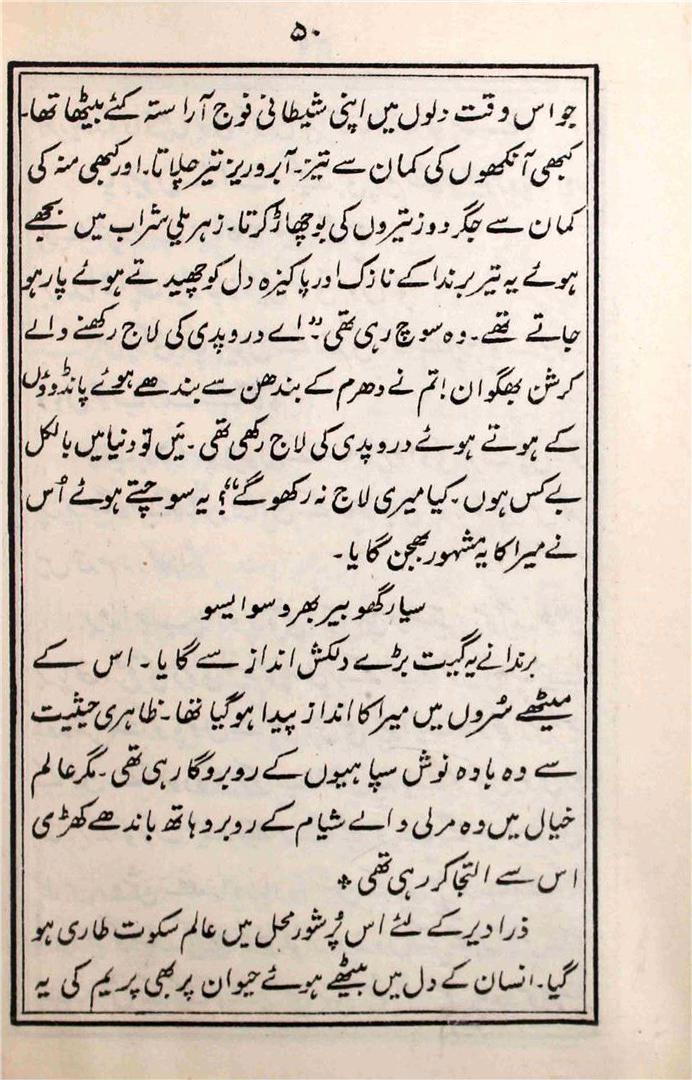 ۵۰
جو اس وقت دلوں میں اپنی شیطانی فوج آراستہ کئے بیٹھا تھا۔
کبھی آنکھوں کی کمان سے تیز۔ آبروریز تیر چلاتا۔ اور کبھی منہ کی
کمان سے جگر دوز تیروں کی بوچھاڑ کرتا۔ زہریلی شراب میں بجھے
ہوئے یہ تیر برندا کے نازک اور پاکیزہ دل کو چھیدتے ہوئے پار ہو
جاتے تھے۔ وہ سوچ رہی تھی۔ "اے دروپدی کی لاج رکھنے والے
کرشن بھگوان! تم نے دھرم کے بندھن سے بندھے ہوئے پانڈوؤں
کے ہوتے ہوئے دروپدی کی لاج رکھی تھی۔ میَں تو دنیا میں بالکل
بے کس ہوں۔ کیا میری لاج نہ رکھو گے"؟ یہ سوچتے ہوئے اُس
نے میرا کا یہ مشہور بھجن گایا۔
سیار گھوبیر بھروسو ایسو
برندا نے یہ گیت بڑے دلکش انداز سے گایا۔ اس کے
میٹھے سُروں میں میرا کا انداز پیدا ہوگیا تھا۔ ظاہری حیثیت
سے وہ بادہ نوش سپاہیوں کے روبرو گا رہی تھی۔ مگر عالم
خیال میں وہ مرلی والے شیام کے روبرو ہاتھ باندھے کھڑی
اس سے التجا کر رہی تھی ٭
ذرا دیر کے لئے اس پُرشور محل میں عالم سکوت طاری ہو
گیا۔ انسان کے دل میں بیٹھے ہوئے حیوان پر بھی پریم کی یہ